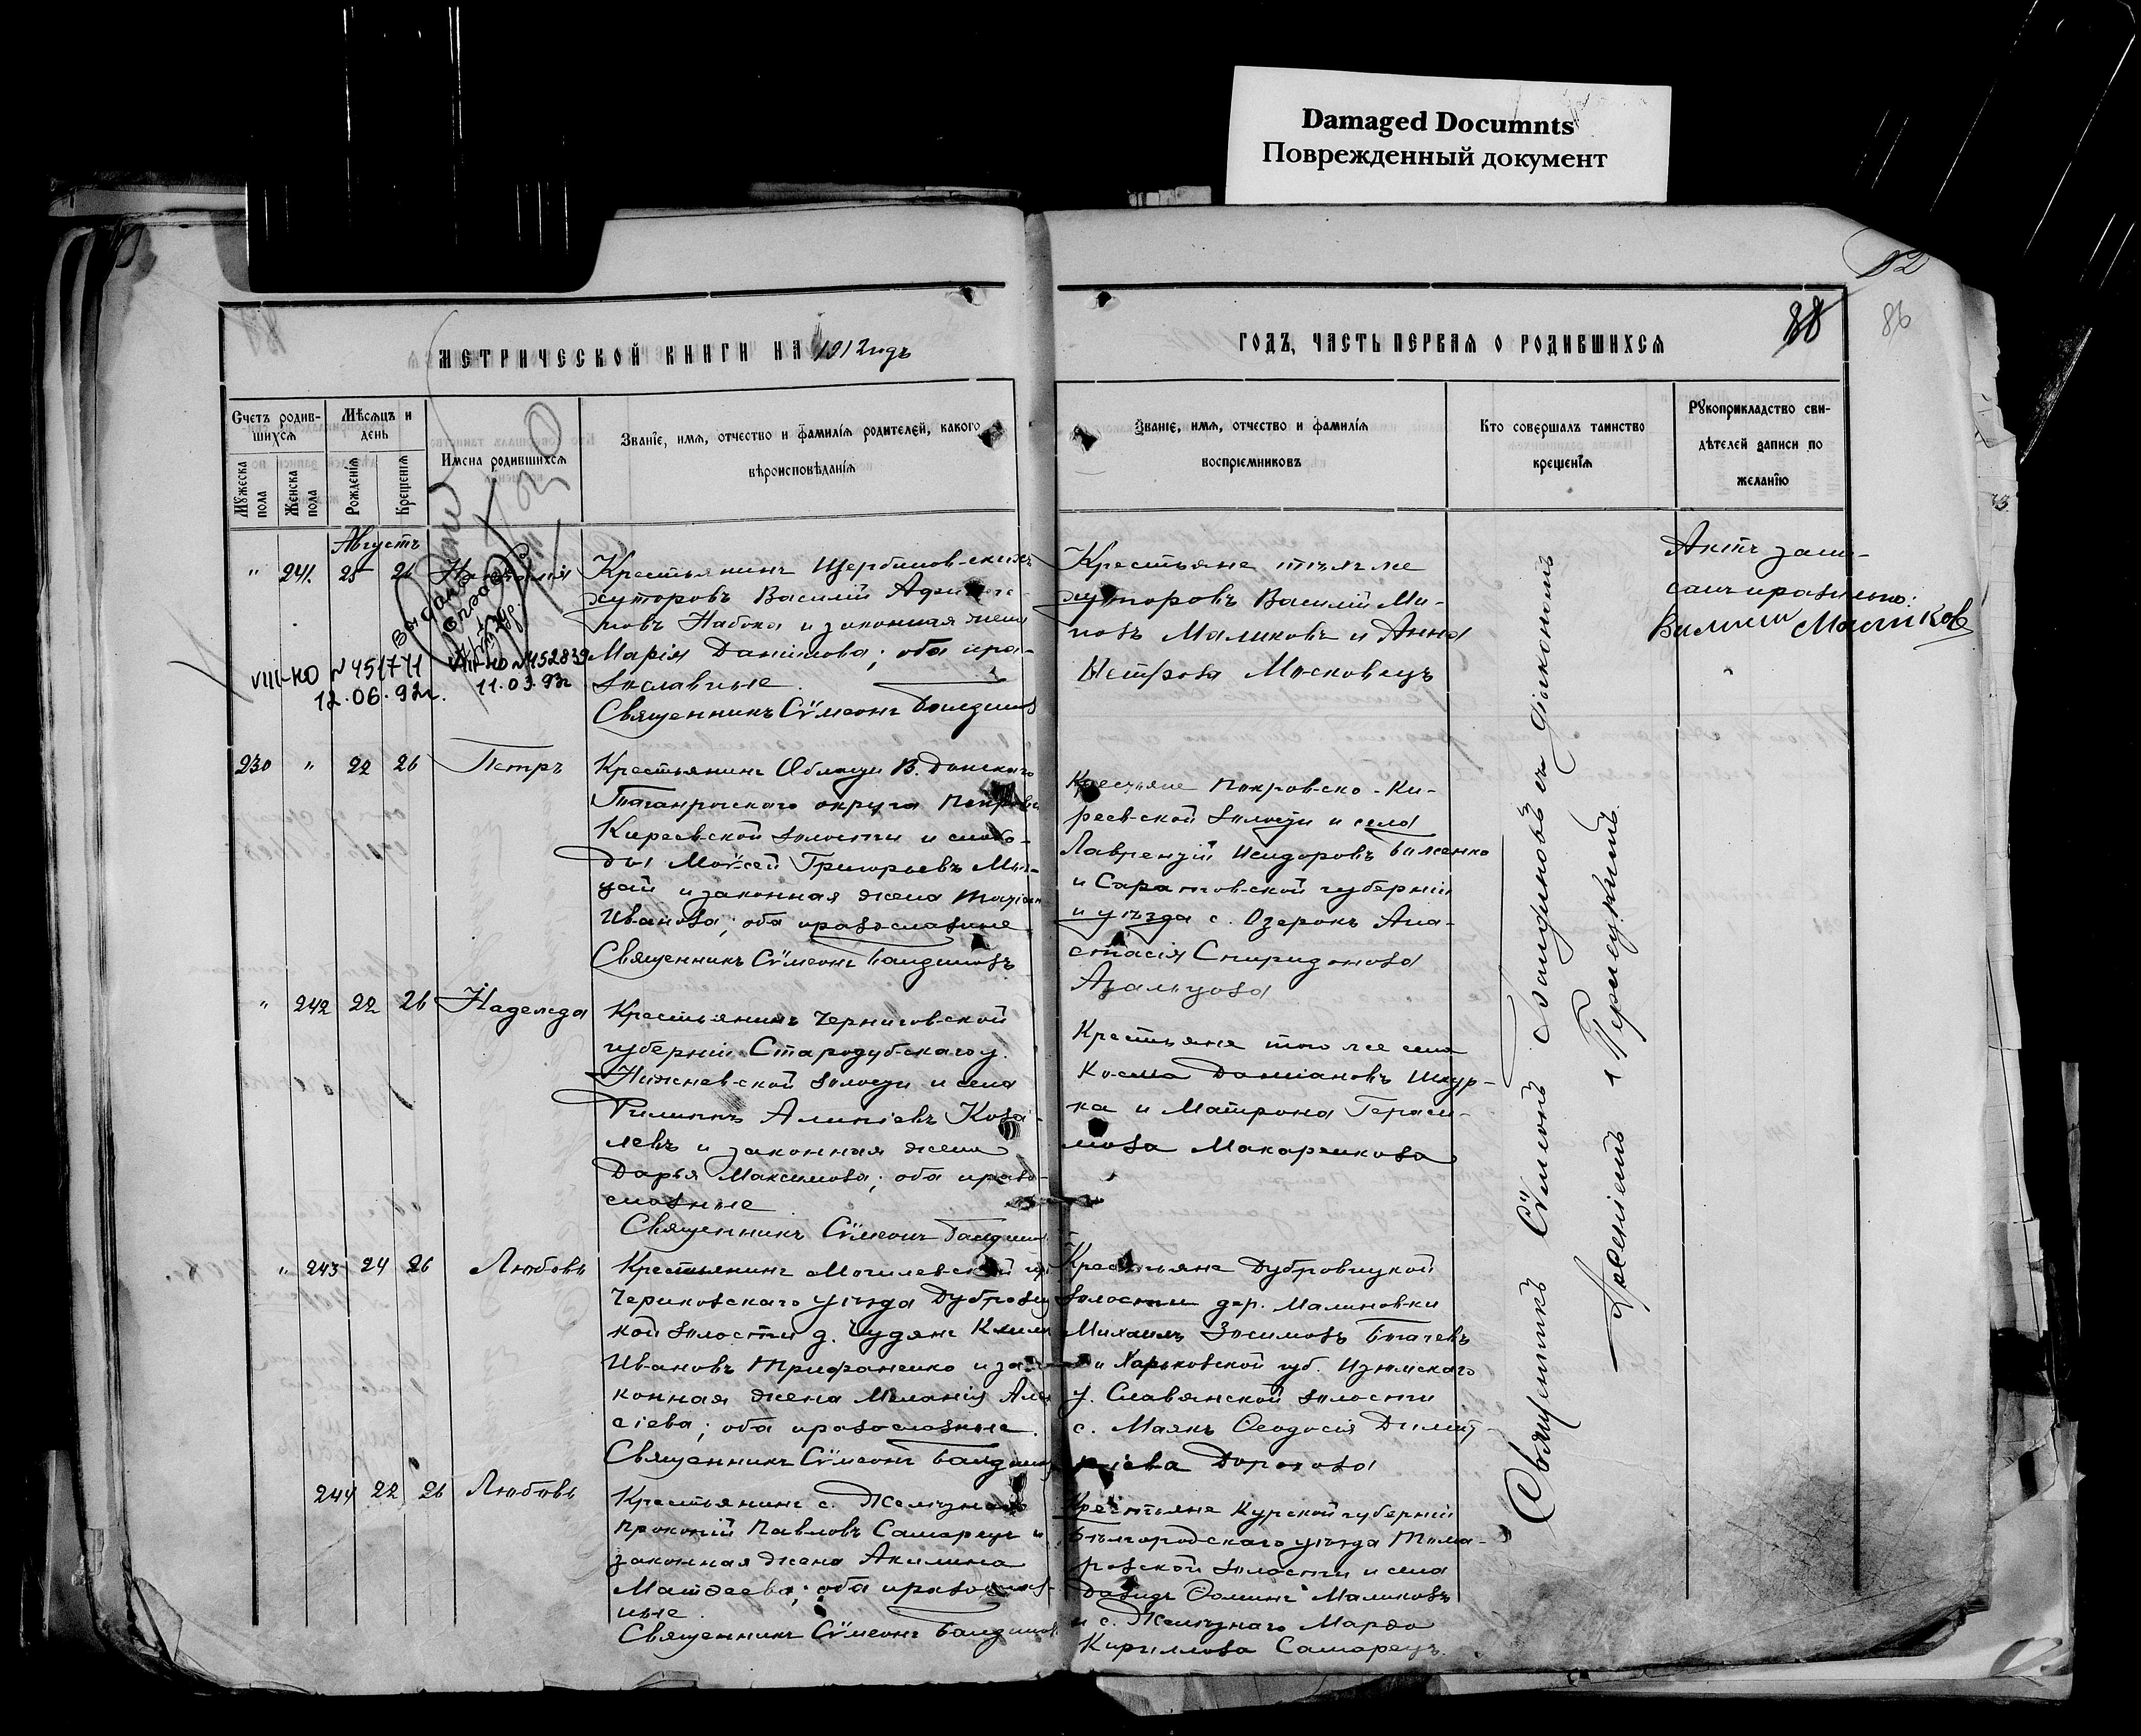 Damaged Documnts
Поврежденный документ
82
88
86
МЕТРИЧЕСКОЙ КНИГИ НА 1912 годъ
ГОДЪ, ЧАСТЬ ПЕРВАЯ О РОДИВШИХСЯ
Счетъ родив-
шихся
Мѣсяцъ и
день
Мужеска
пола
Женска
пола
Рожденія
Крещенія
Имена родившихся
Званіе, имя, отчество и фамилія родителей, какого
вѣроисповѣданія
Званіе, имя, отчество и фамилія
воспріемниковъ
Кто совершалъ таинство
крещенія
Рукоприкладство сви-
дѣтелей записи по
желанію
Августъ
" 241. 25 26
VIII-НО №451771
12.06.92г.
VIII-НО №452839
11.03.93г
Крестьянинъ Щербиновскихъ
хуторовъ Василій
Набока и законная жена
Марія Данилова; оба пра-
вославные.
Священникъ Сѵмеонъ Бандиновъ
Крестьяне тѣхъ же
хуторовъ Василій Ми-
новъ Маликовъ и Анна
Петрова Московецъ
Актъ запи-
санъ правильно:
Василій Маликов
230 " 22 26 Петръ
Крестьянинъ Области В. Донскаго
Таганрогскаго округа Покровско
Киреевской волости и слобо-
ды Моѵсей Григорьевъ
и законная жена
Иванова; оба православные
Священникъ Сѵмеонъ Бандиновъ
Крестьяне Покровско-Ки-
реевской волости и села
Лаврентій Исидоровъ
и Саратовской губерніи
и уѣзда с. Озерокъ Ана-
стасія Спиридонова
" 242 22 26 Надежда
Крестьянинъ Черниговской
губерніи Стародубскаго у.
волости и села
Филиппъ Алипіевъ Кова-
левъ и законная жена
Дарья Максимова; оба право-
славные
Священникъ Сѵмеонъ Бандинов
Крестьяне того же села
Косма Даміановъ Шкур-
ка и Матрона Гераси-
мова Макаренкова
" 243 24 26 Любовь
Крестьянинъ Могилевской губ.
Чериковскаго уѣзда Дубровиц
кой волости д. Чудянъ Клим
Ивановъ Трифаненко и за-
конная жена Меланія Алек
сіева; оба православные.
Священникъ Сѵмеонъ Бандинов
Крестьяне Дубровицкой
волости дер. Малиновки
Михаилъ Зосимовъ
и Харьковской губ. Изюмскаго
у. Славянской волости
с. Маякъ Ѳеодосія Димит-
ріева Дорохова
244 22 26 Любовь
Крестьянинъ с. Желѣзнаго
Прокопій Павловъ Самарецъ и
законная жена Акилина
Матѳеева; оба православ-
ные.
Священникъ Сѵмеонъ Бандинов
Крестьяне Курской губерніи
Бѣлгородскаго уѣзда Тома-
ровской волости и села
Давидъ Ѳоминъ Маликовъ
и с. Желѣзнаго Марѳа
Кириллова Самарецъ.
Священникъ Сѵмеонъ Бандиновъ съ діакономъ
Арсеніемъ Трипецкимъ.